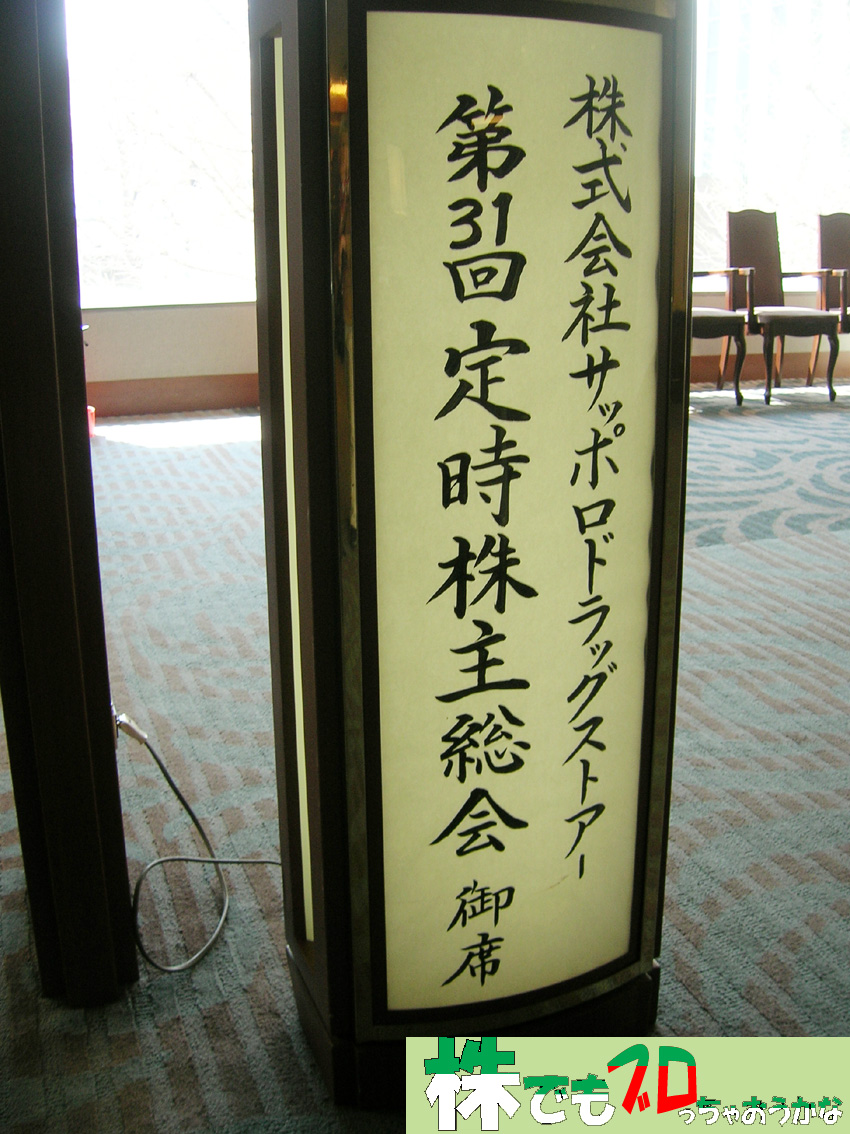 株式会社サッポロドラッグストアー
第31回定時株主総会 御席
株でもブロっちゃおうかな